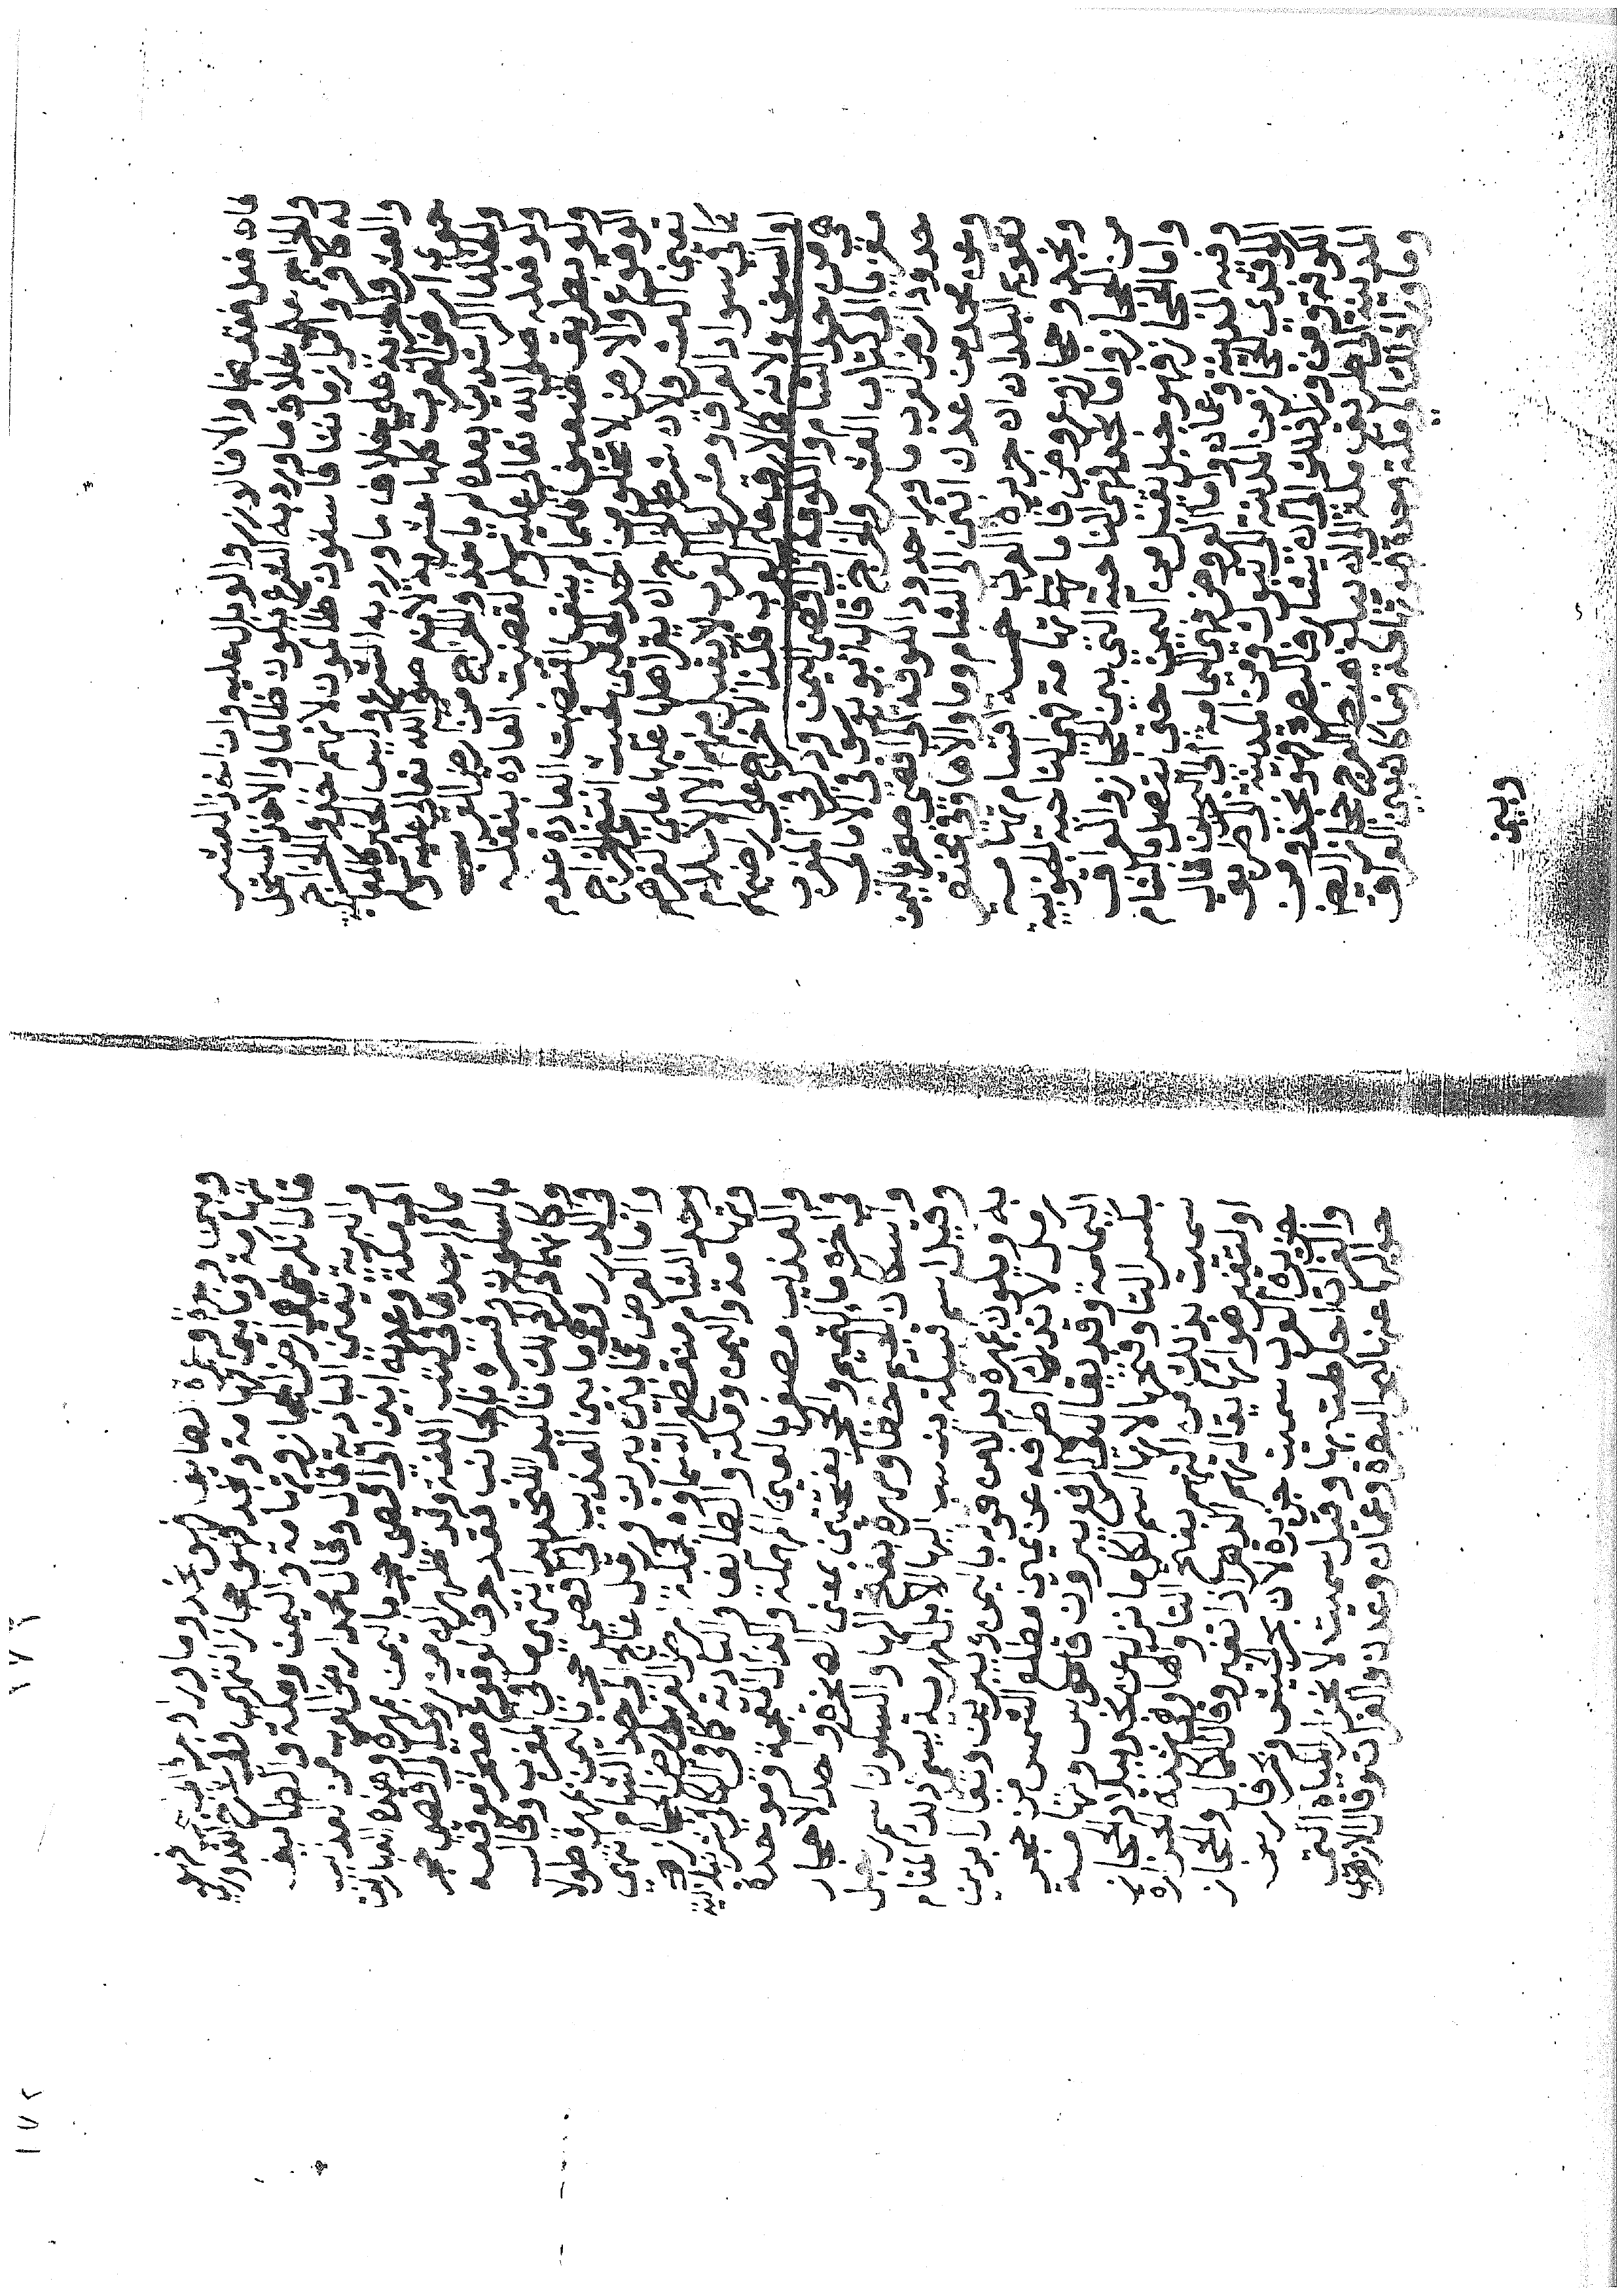 فان فعل فقد نجا والا فالوزر والوبال عليه وان اخذ العشر
والخراج على خلاف ما ورد به الشرع يكون ظالما والاخذ المستحل
له كافر واكثر زماننا فاسقون ظالمون لانهم اخذوا الخراج
والعشر والجزية على خلاف ما ورد به الشرع وليس
ارض العرب كلها عشرية لانه صلى الله تعالى عليه وسلم
والخلفاء الراشدين بعده لم ياخذوا الخراج من ارض العرب
ولو فعله صلى الله تعالى عليه وسلم لقضت العادة بنقله
ولو بطريق ضعيف فلما لم ينقل اقتضت العادة عدم
الوقوع ولا ارض لا تخلو من احد الحقين فحيث انتفى الخراج
تعين العشر ولان شرط الخراج ان يقر اهلها عليها على الكفر
كما في سواد العراق ومشركوا العرب لا يقبل منهم الا الاسلام
او السيف ولانه كما لا رق على العرب فكذا لا خراج على ارضهم
وهي من حد الشام والكوفة الى اقصى اليمن وذكر في المغرب
معزيا الى كتاب العشر والخراج قال ابو يوسف في الامالي
حدود ارض العرب ما وراء حدود الكوفة الى اقصى صخر باليمن
وعن محمد من عدن ابين الى الشام وما والاها وفي
تقويم البلدان ان جزيرة العرب خمسة اقسام تهامة
ونجد وحجاز وعروض فاما تهامة فهي الناحية الجنوبية
من الحجاز واما نجد فهي الناحية التي بين الحجاز والعراق
واما الحجاز فهو جبل يقبل من اليمن حتى يتصل بالشام
وفيه المدينة وعمان واما العروض فهي اليمامة الى البحرين قال
الواقدي الحجاز من المدينة الى تبوك ومن المدينة الى طريق
الكوفة ومن وراء ذلك الى ان يشارف البصرة فهو نجد ومن
المدينة الى طريق مكة الى ان يبلغ مهبط العرج حجاز ايضا
وما وراء ذلك الى مكة وجدة فهو تهامة وما كان بين العراق
وبين
وبين وجرة وغمرة الطايف فهو نجد وما وراء وجرة الى البحر فهو
تهامة وما بين تهامة ونجد فهو حجاز انتهى وفي شرح القدوري
قال الكرخي ارض الحجاز وتهامة واليمن ومكة والطايف
والبرية يعني البادية قال وقال محمد ارض العرب من العذيب
الى مكة وعدن ابين الى اقصى حجر باليمن بمهرة وهذه العبارات
مما لم اجدها في كتب اللغة وقد ظهر ان من روى الى اقصى حجر
بالسكون وفسره بالجانب فقد حرف لوقوع صخر موقعه
وكانهما ذكرا ذلك تاكيدا للتحديد انتهى ما في المغرب وقال
في الدرر وهي ما بين العذيب الى اقصى حجر باليمن بمهرة طولا
واما العرض فما بين يبرين ورمل عالج الى حد الشام انتهى
وحد الشام منقطع السماوة ارض العرب ارض الحجاز
وتهامة واليمن ومكة والطايف والبادية كما في الكافي شرنبلالية
والعذيب مصغر بالعين المهملة والذال المعجمة وموحدة
في اخره ما لتميم والحجر بفتحتين بمعنى الصخرة واحد الاحجار
واسكان الجيم خطا ومهرة بفتح الهاء والسكون اسم رجل
وقيل اسم قبيلة ينسب اليها الابل المهرية سمي ذلك المقام
به ويكون بمهرة بدلا من قوله باليمن ويبرين ويقال ابرين
رمل لا تدرك اطرافه عن يمين مطلع الشمس من حجر
اليمامة وقد يقال في الرفع يبرون قاموس وتهامة
بكسر التاء وفتحها لانها اسم لكل ما نزل عن نجد من بلاد الحجاز
سميت بذلك من التهم بفتح التاء والهاء وهو شدة الحرارة
او لتغير هوائها يقال تهم الدهن اذا تغير وقال الكمال والحجاز
جزيرة العرب سميت جزيرة لان بحر الحبش وبحر فارس
والفرات احاطت بها وقيل سميت لانجزار المياه التي
حواليها عنها كبحر البصرة وعمان وعدن والفرات وقال الازهري
١٧٦
١٧٢